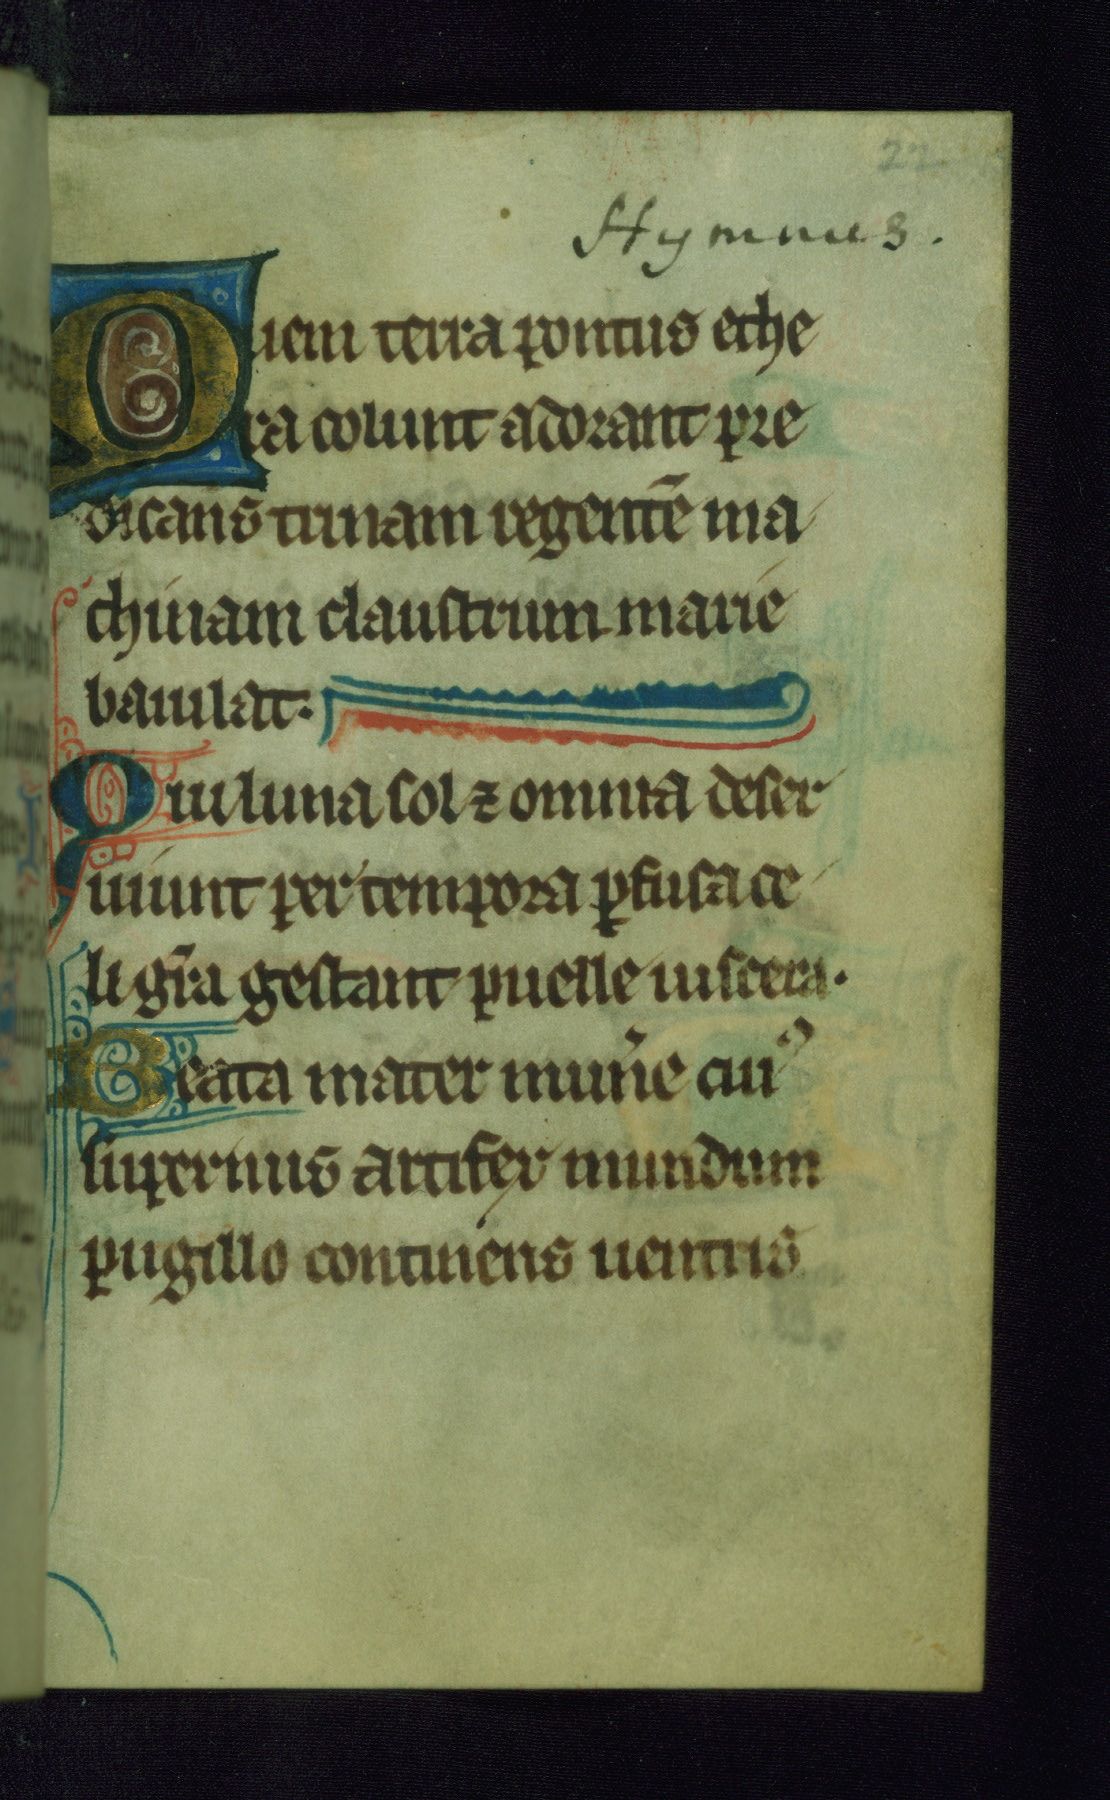 22
Hymnus.
Quem terra pontus ethe
ra colunt adorant pre
dicans trinam regentē ma
chinam claustrum marie
baiulat.
Qui luna sol ⁊ omnia deser
uiunt per tempora ꝑfusa ce
li gr̄a gestant puelle uiscera.
Beata mater mun̄e cuiꝰ
supernus artifex mundum
pugillo continens uentris